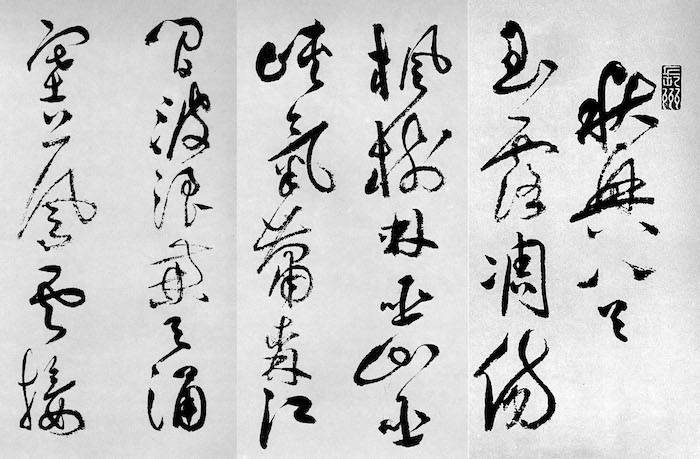 長洲
秋興八首
玉露凋傷
楓樹林巫山巫
峽氣蕭森江
間波浪兼天涌
塞上風雲接